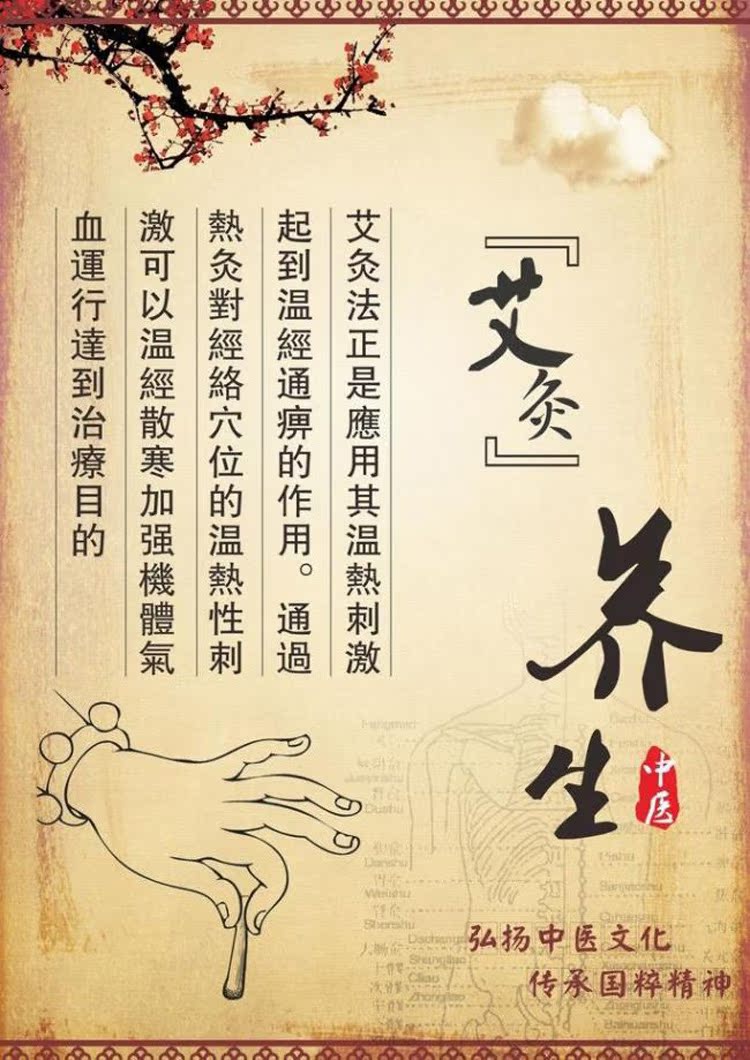 『艾灸』
养生
中医
艾灸法正是應用其温熱刺激
起到温經通痹的作用。通過
熱灸對經絡穴位的温熱性刺
激可以温經散寒加强機體氣
血運行達到治療目的
弘扬中医文化
传承国粹精神
Dushu
Weishu
Shenshu
Shangliao
Ciliao
Zhongliao
Pishu
Sanjiaoshu